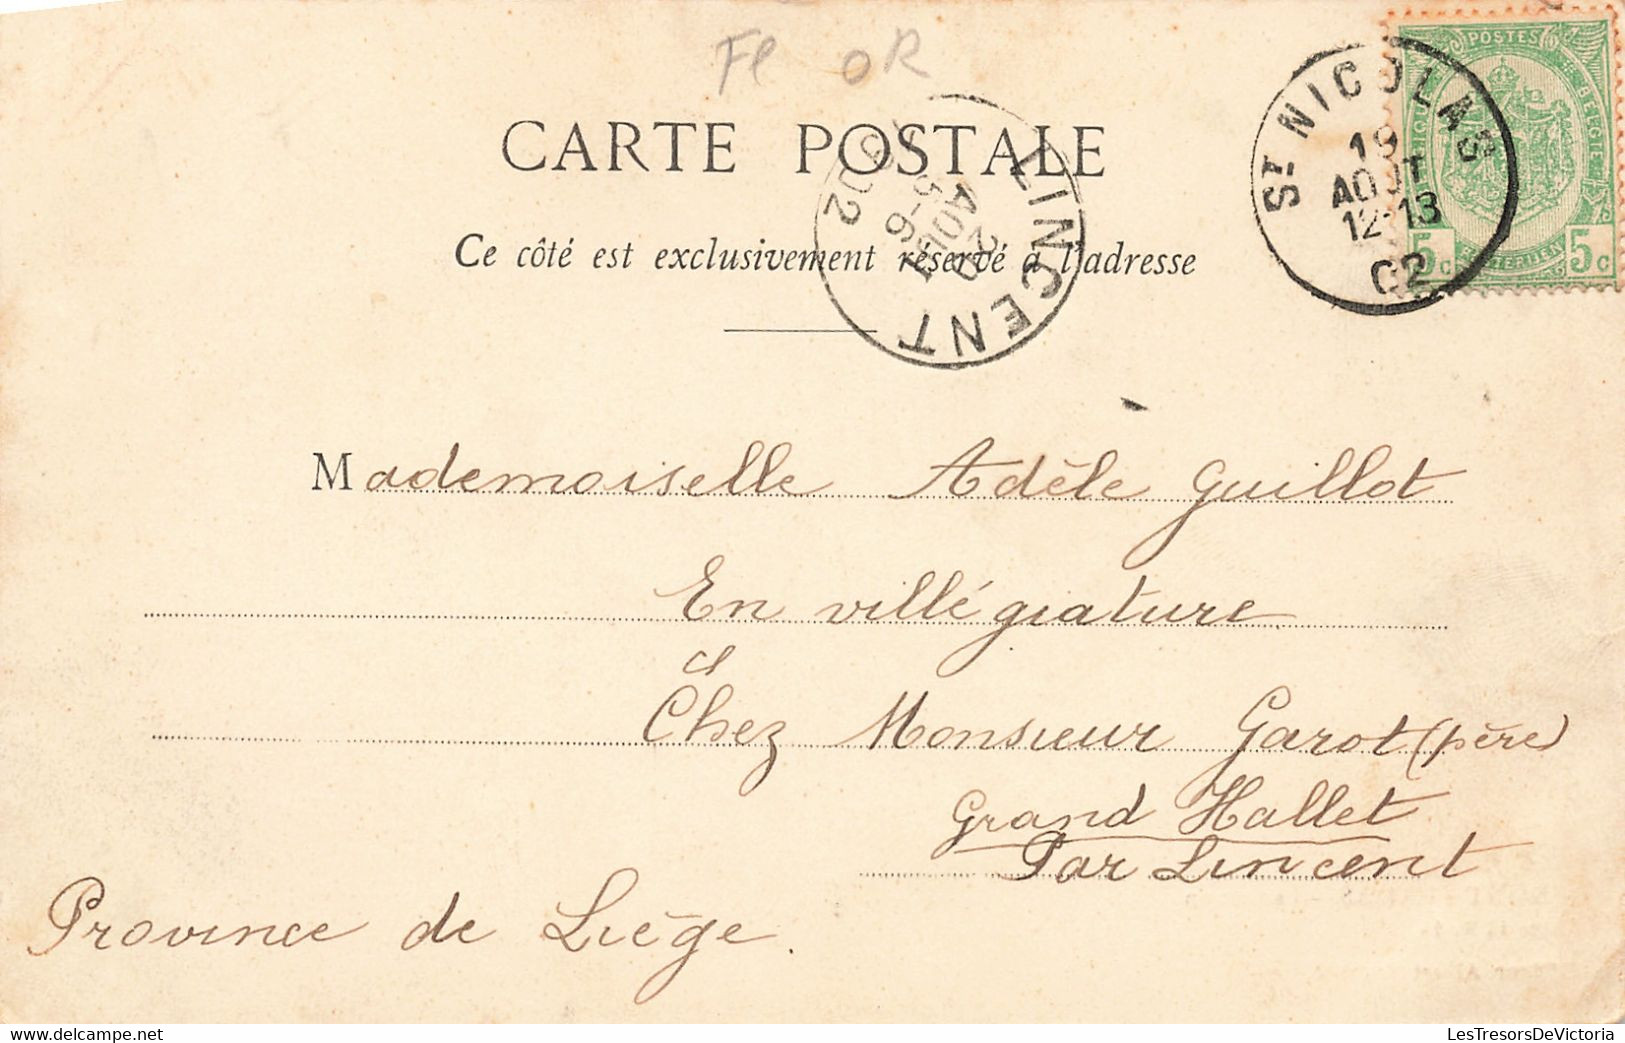 Fl OR
CARTE POSTALE
Ce côté est exclusivement réservé à l'adresse
LINCENT
AOUT
02
St NICOLAS
19
AOUT
12-13
02
POSTES
BELGIE
5c 5c
Mademoiselle Adèle Guillot
En villégiature
Chez Monsieur Garot (père)
Grand Hallet
Par Lincent
Province de Liège.
LesTresorsDeVictoria